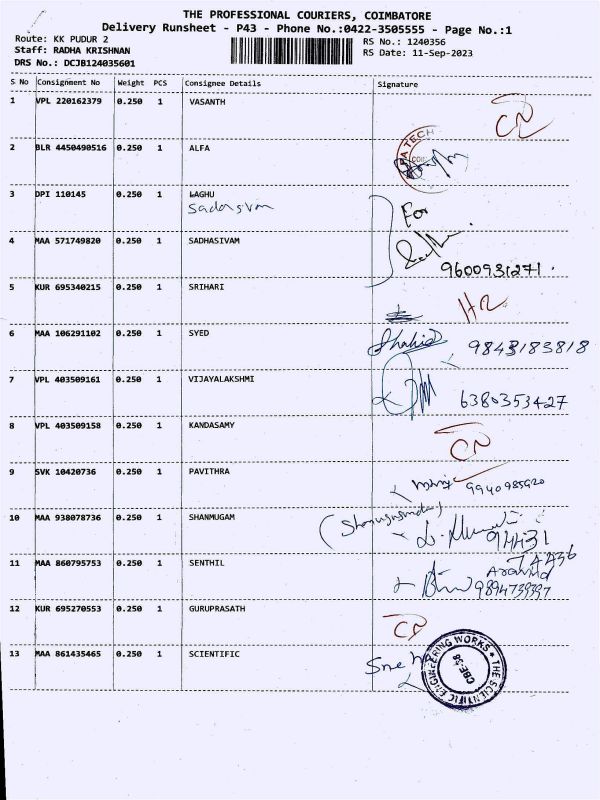 THE PROFESSIONAL COURIERS, COIMBATORE
Delivery Runsheet - P43 - Phone No.:0422-3505555 - Page No.:1
Route: KK PUDUR 2
RS No.: 1240356
Staff: RADHA KRISHNAN
RS Date: 11-Sep-2023
DRS No.: DCJB124035601
S No Consignment No Weight PCS Consignee Details Signature
1 VPL 220162379 0.250 1 VASANTH
2 BLR 4450490516 0.250 1 ALFA
3 DPI 110145 0.250 1 LAGHU
Sadasivm
For
4 MAA 571749820 0.250 1 SADHASIVAM
9600931271.
5 KUR 695340215 0.250 1 SRIHARI
6 MAA 106291102 0.250 1 SYED
Shahid 9843183818
7 VPL 403509161 0.250 1 VIJAYALAKSHMI
6380353427
8 VPL 403509158 0.250 1 KANDASAMY
9 SVK 10420736 0.250 1 PAVITHRA
9940985920
10 MAA 938078736 0.250 1 SHANMUGAM
94431
74436
11 MAA 860795753 0.250 1 SENTHIL
Aravind
9894739397
12 KUR 695270553 0.250 1 GURUPRASATH
13 MAA 861435465 0.250 1 SCIENTIFIC
Sneha
THE SCIENTIFIC ENGINEERING WORKS
CBE-38